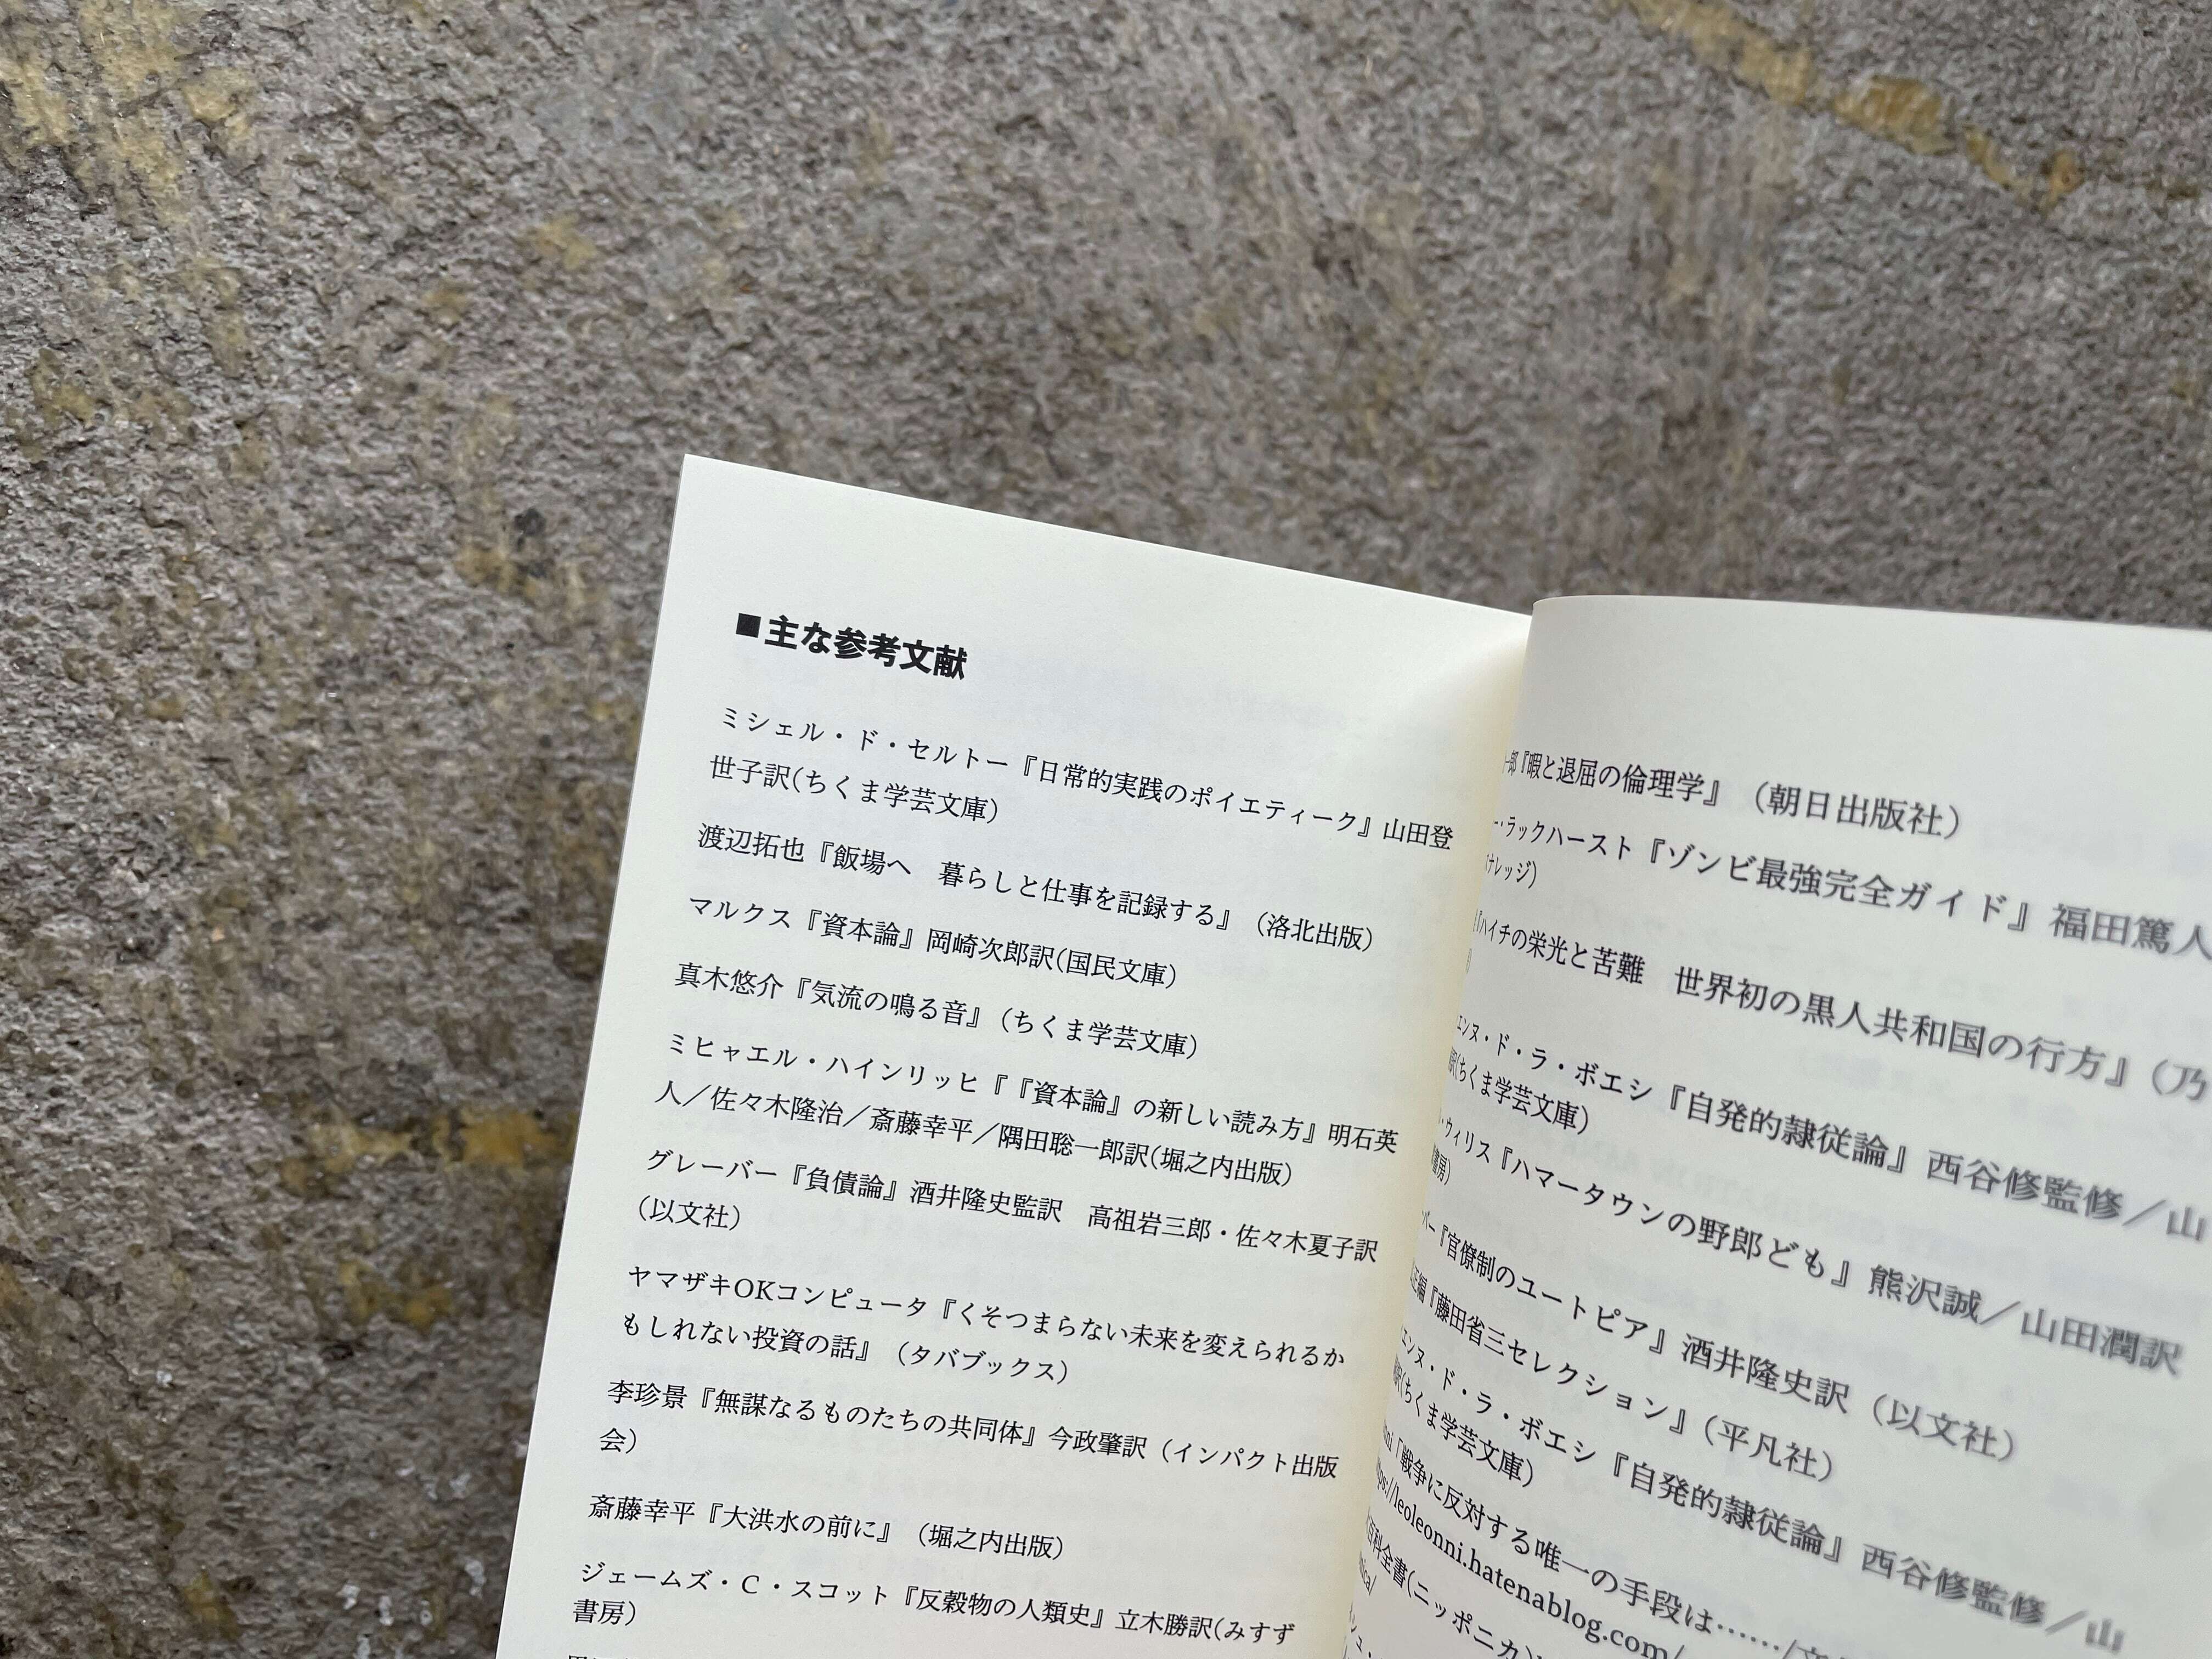 ■主な参考文献
ミシェル・ド・セルトー『日常的実践のポイエティーク』山田登
世子訳(ちくま学芸文庫)
渡辺拓也『飯場へ　暮らしと仕事を記録する』（洛北出版）
マルクス『資本論』岡崎次郎訳(国民文庫)
真木悠介『気流の鳴る音』（ちくま学芸文庫）
ミヒャエル・ハインリッヒ『『資本論』の新しい読み方』明石英
人／佐々木隆治／斎藤幸平／隅田聡一郎訳(堀之内出版)
グレーバー『負債論』酒井隆史監訳　高祖岩三郎・佐々木夏子訳
（以文社）
ヤマザキOKコンピュータ『くそつまらない未来を変えられるか
もしれない投資の話』（タバブックス）
李珍景『無謀なるものたちの共同体』今政肇訳（インパクト出版
会）
斎藤幸平『大洪水の前に』（堀之内出版）
ジェームズ・C・スコット『反穀物の人類史』立木勝訳(みすず
書房）
一郎『暇と退屈の倫理学』（朝日出版社）
ー・ラックハースト『ゾンビ最強完全ガイド』福田篤人
ナレッジ)
『ハイチの栄光と苦難　世界初の黒人共和国の行方』（乃
エンヌ・ド・ラ・ボエシ『自発的隷従論』西谷修監修／山
訳(ちくま学芸文庫)
・ウィリス『ハマータウンの野郎ども』熊沢誠／山田潤訳
書房)
バー『官僚制のユートピア』酒井隆史訳（以文社）
正編『藤田省三セレクション』（平凡社）
エンヌ・ド・ラ・ボエシ『自発的隷従論』西谷修監修／山
訳(ちくま学芸文庫)
「戦争に反対する唯一の手段は……/
ps://leoleonni.hatenablog.com/
百科全書(ニッポニカ)